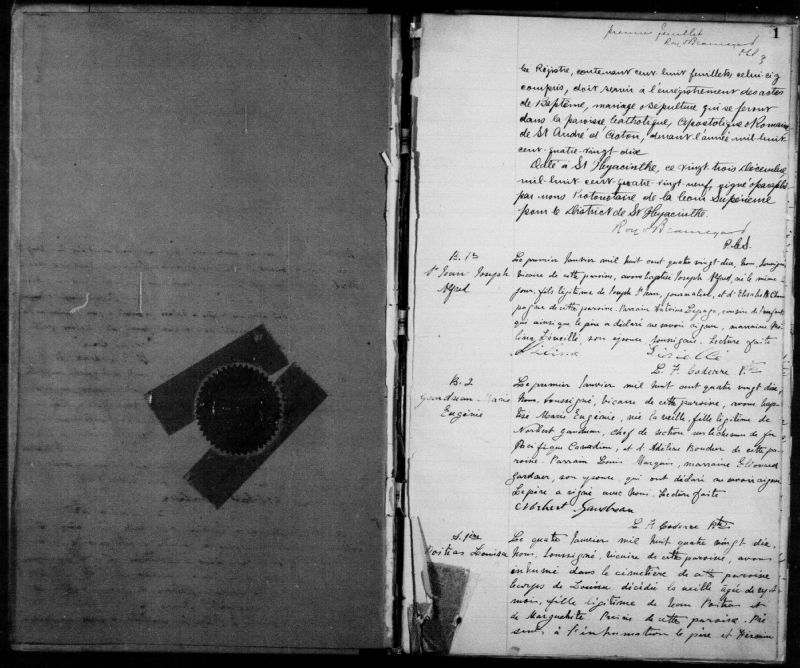 premier feuillet
1
Roy & Beauregard
Ce Régistre, contenant cent huit feuillets, celui-ci y
compris, doit servir à l'enrégistrement des actes
de Baptême, mariage & sépulture qui se feront
dans la paroisse Catholique, Apostolique & Romaine
de St André d'Acton, durant l'année mil huit
cent quatre-vingt dix
Daté à St Hyacinthe, ce vingt trois Décembre
mil-huit cent quatre vingt neuf, signé & paraphé
par nous Protonotaire de la Cour Supérieure
pour le District de St Hyacinthe.
Roy & Beauregard
P.C.S.
B. 1re
St Jean Joseph
Alfred
Le premier Janvier mil huit cent quatre vingt dix, Nous, soussigné
vicaire de cette paroisse, avons baptisé Joseph Alfred, né le même
jour, fils légitime de Joseph St Jean, journalier, et d'Elisabeth Cham
pagne de cette paroisse. Parrain Antoine Lepage, cousin de l'enfant
qui ainsi que le père a déclaré ne savoir signer, marraine
son épouse, soussignée. Lecture faite
L. F. Caderre Ptre
B. 2
Gaudreau Marie
Eugénie
Le premier Janvier mil huit cent quatre vingt dix,
Nous, soussigné, vicaire de cette paroisse, avons bap
tisé Marie Eugénie, née la veille, fille légitime de
Norbert Gaudreau, chef de section sur le chemin de fer
Pacifique Canadien, et d'Adéline Boucher de cette pa
roisse. Parrain Louis marraine
son épouse, qui ont déclaré ne savoir signer
Le père a signé avec Nous. Lecture faite
Norbert Gaudreau
L. F. Caderre Ptre
S. 1ère
Poitras Louisa
Le quatre Janvier mil huit quatre vingt dix,
Nous, soussigné, vicaire de cette paroisse, avons
inhumé dans le cimetière de cette paroisse
le corps de Louisa décédée la veille agée de
mois, fille légitime de Jean Poitras et
de Marguerite de cette paroisse. Pré
sents à l'inhumation le père et